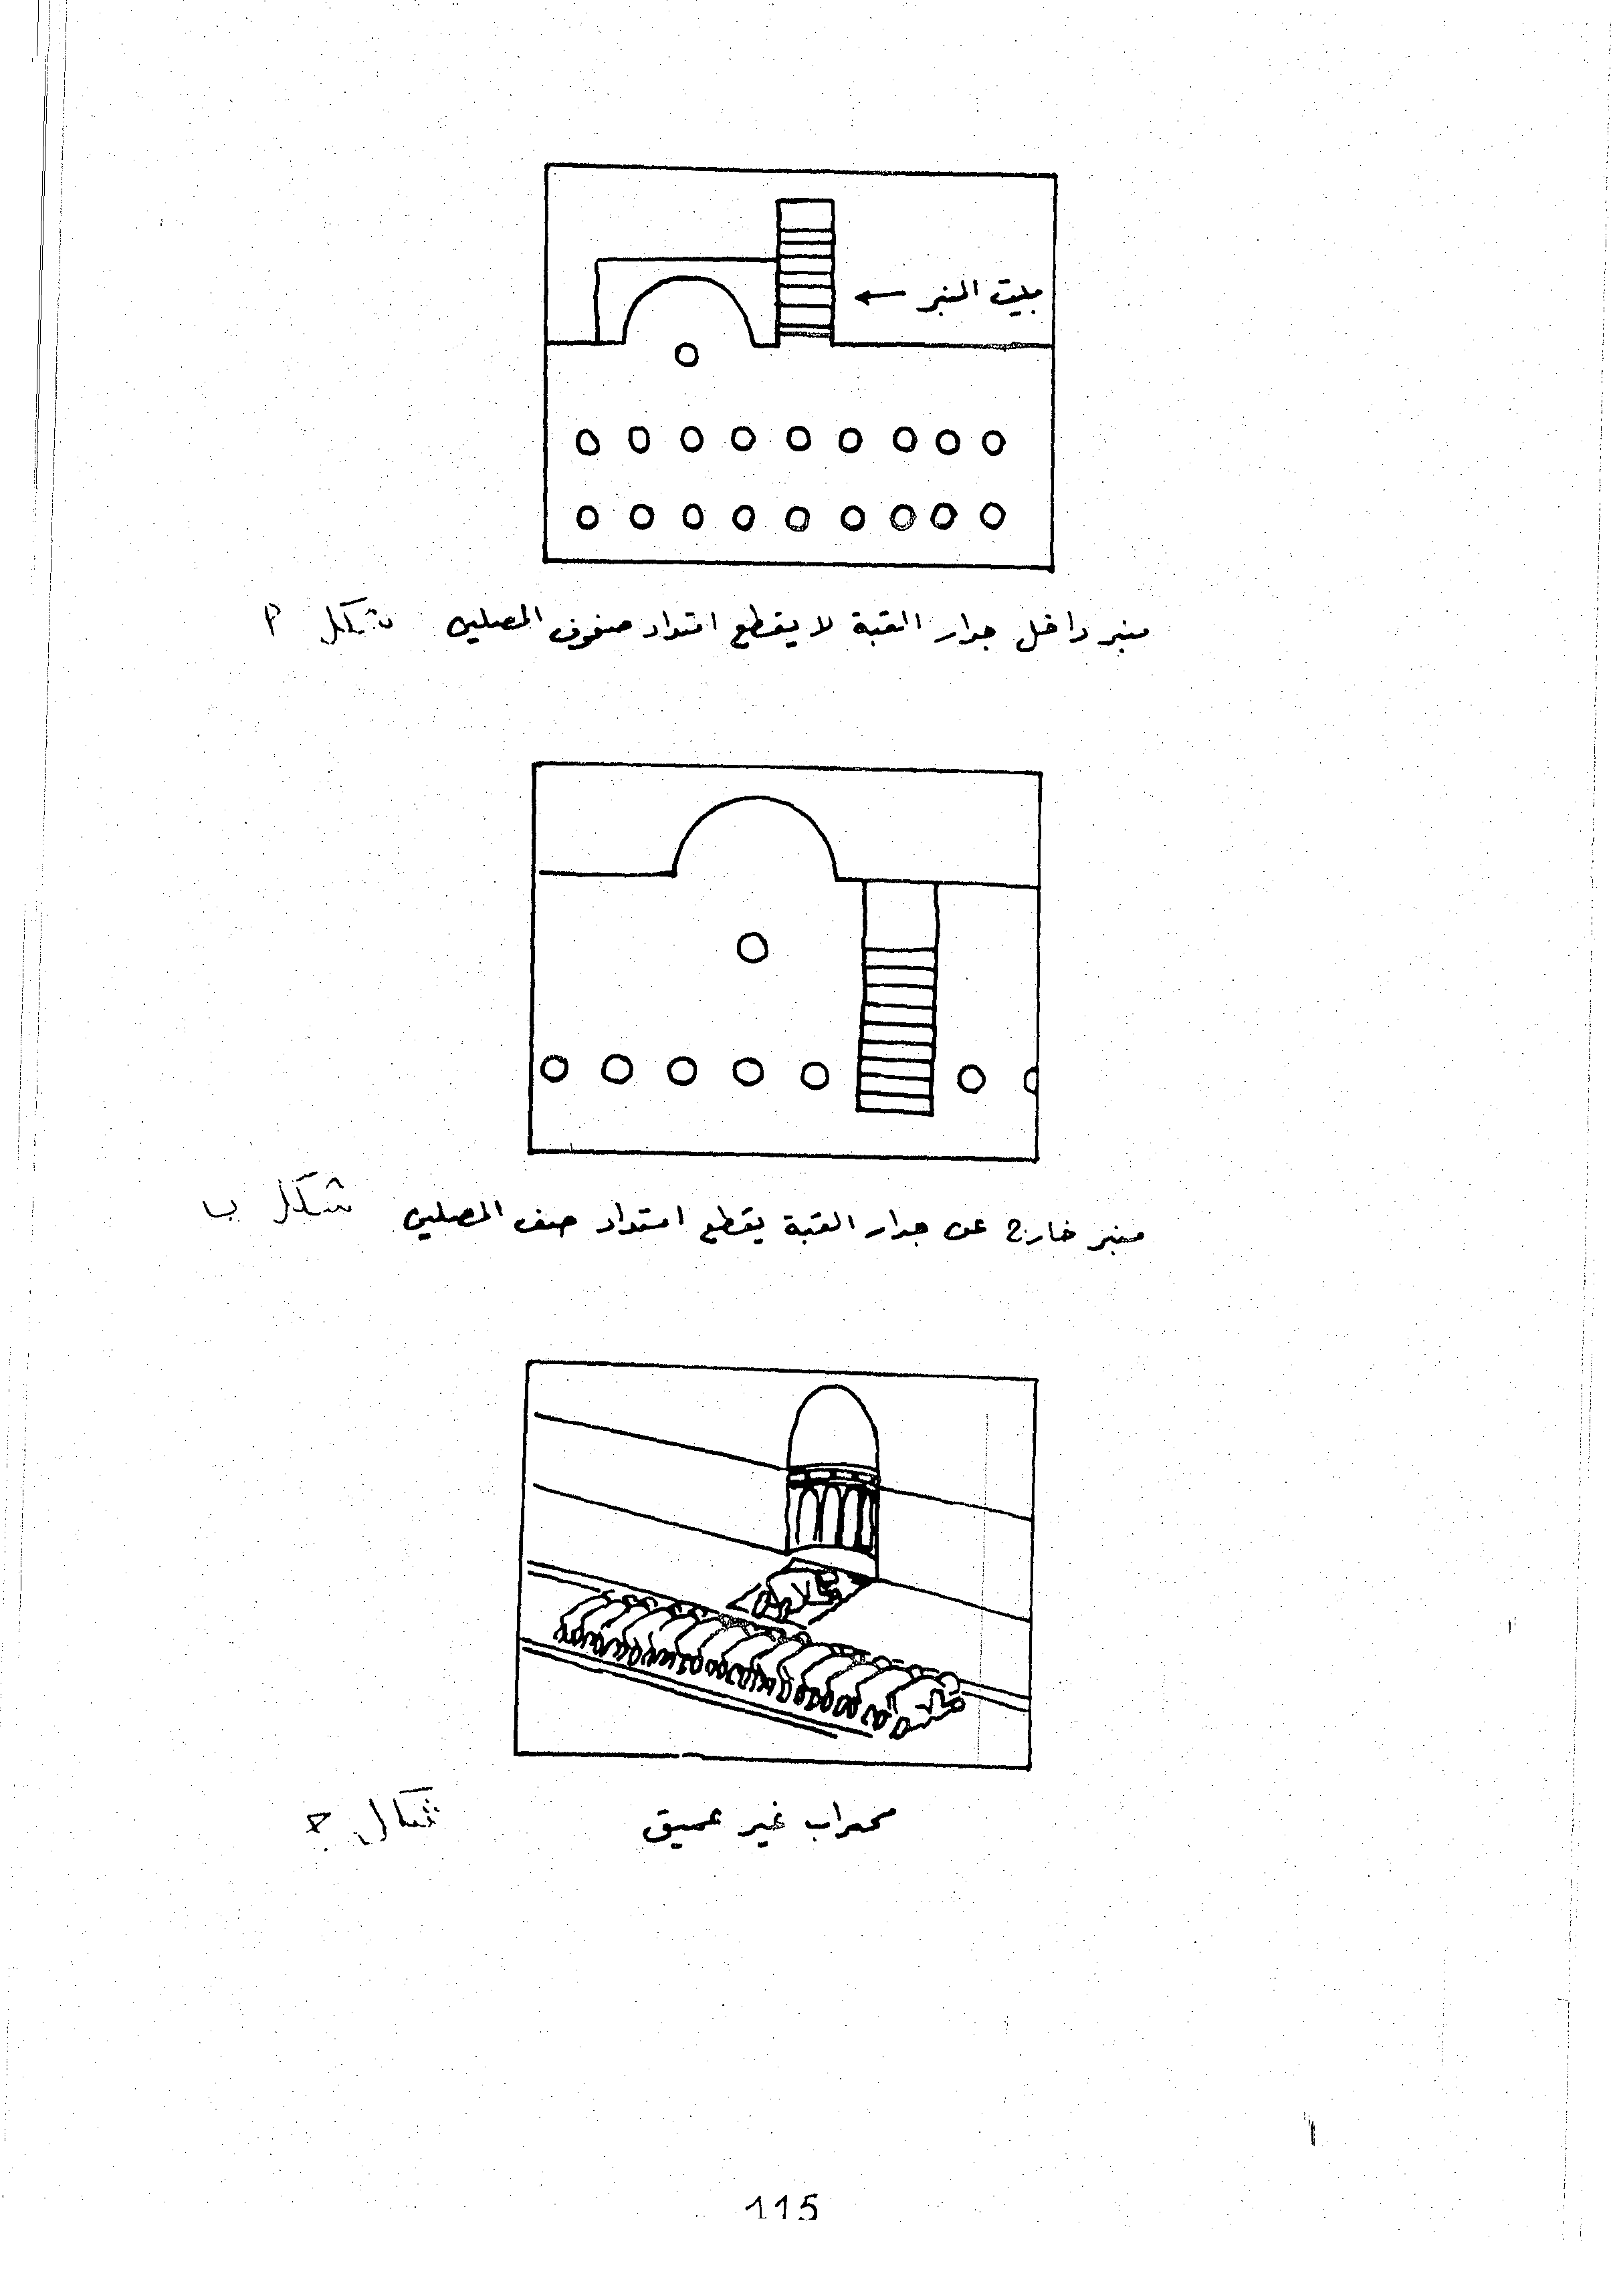 مبيت المنبر
منبر داخل جدار القبة لا يقطع امتداد صفوف المصلين شكل أ
منبر خارج عن جدار القبة يقطع امتداد صف المصلين شكل ب
محراب غير عميق شكل ج
115